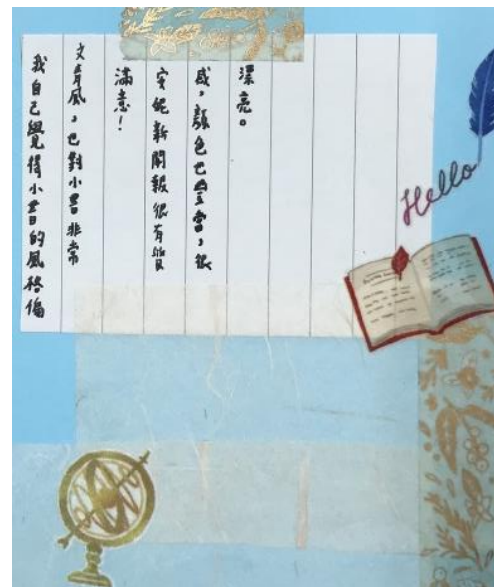 我自己覺得小書的風格偏
文青風，也對小書非常
滿意！
安妮新聞報很有質
感，顏色也豐富，很
漂亮。
Hello